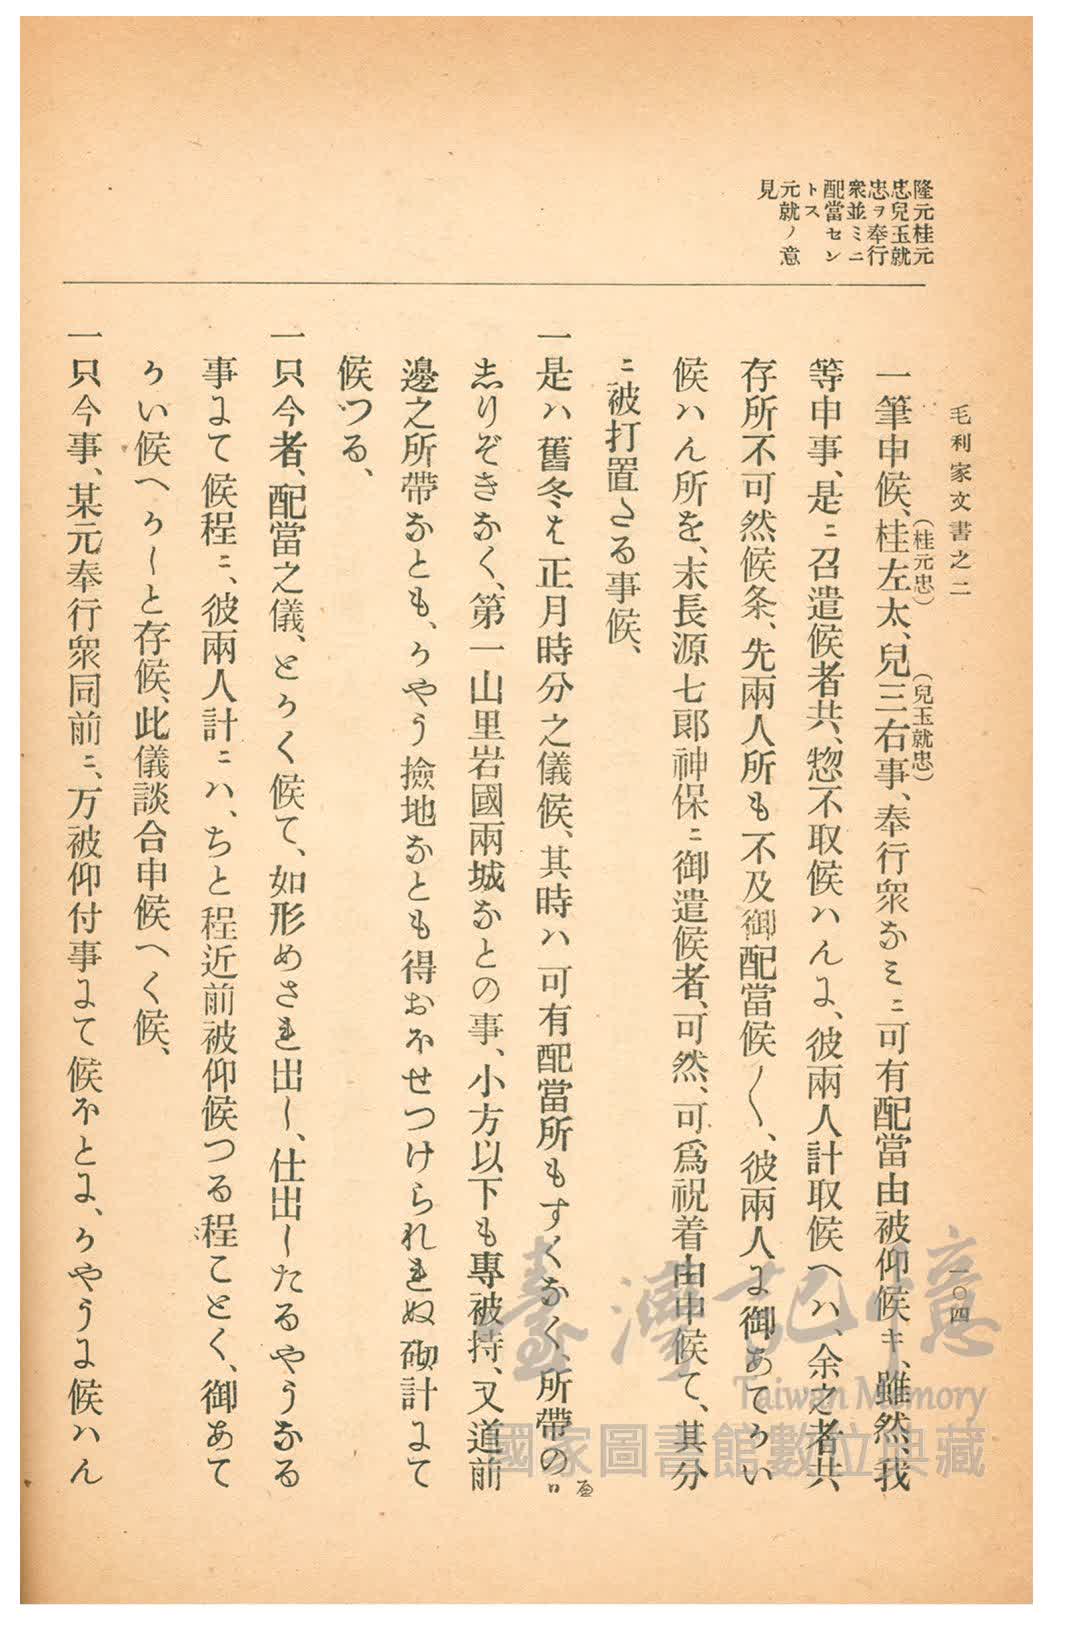 毛利家文書之二
一〇四
隆元桂元
忠兒玉就
忠ヲ奉行
衆並ミニ
配當セン
トス
元就ノ意
見
(桂元忠)
(兒玉就忠)
一筆申候、桂左太、兒三右事、奉行衆なミニ可有配當由被仰候キ、雖然、我
等申事、是ニ召遣候者共、惣不取候ハんよ、彼兩人計取候ヘハ、余之者共
存所不可然候条、先兩人所も不及御配當候〳〵、彼兩人よ御あてうい
候ハん所を、末長源七郎神保ニ御遣候者、可然、可爲祝着由申候て、其分
ニ被打置たる事候、
一是ハ舊冬は正月時分之儀候、其時ハ可有配當所もすくなく、所帶の
志りぞきなく、第一山里岩國兩城なとの事、小方以下も專被持、又道前
邊之所帶なとも、うやう撿地なとも得おほせつけられぬ砌計よて
候つる、
一只今者、配當之儀、とうく候て、如形めされ出し、仕出したるやうなる
事よて候程ニ、彼兩人計ニハ、ちと程近前被仰候つる程ことく、御あて
うい候へうしと存候、此儀談合申候へく候、
一只今事、某元奉行衆同前ニ、万被仰付事よて候ほとよ、うやうよ候ハん
臺灣記憶
Taiwan Memory
國家圖書館數位典藏